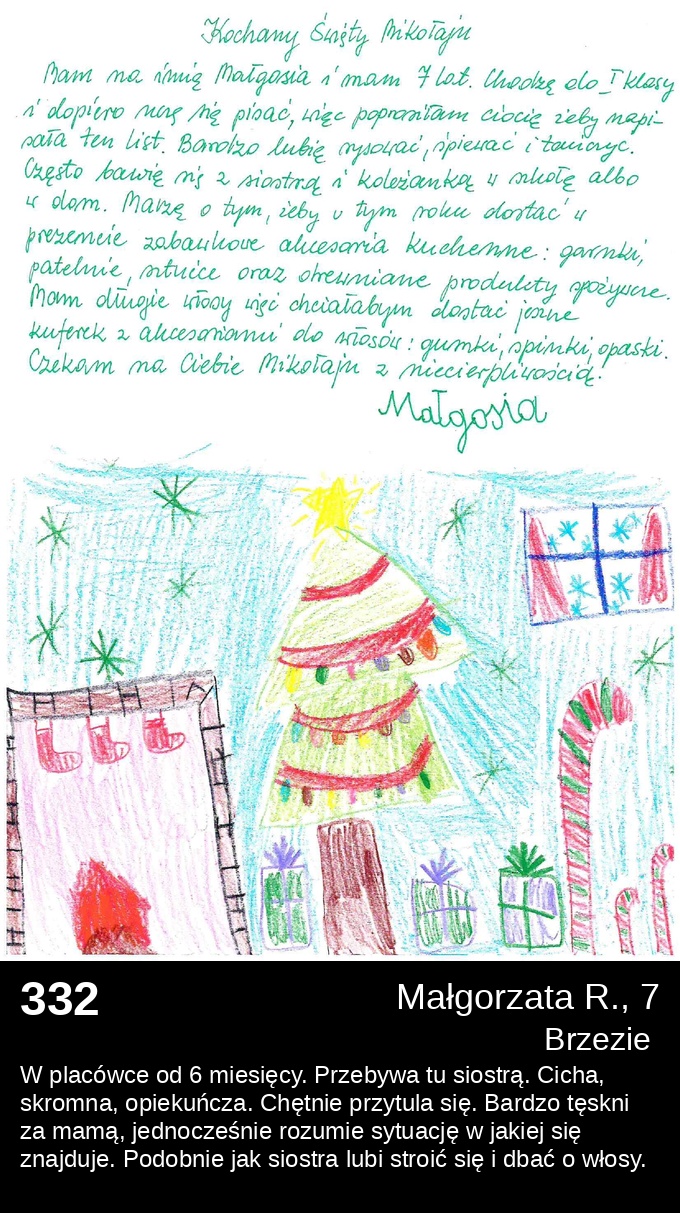 Kochany Święty Mikołaju
Mam na imię Małgosia i mam 7 lat. Chodzę do I klasy
i dopiero uczę się pisać, więc poprosiłam ciocię żeby napi-
sała ten list. Bardzo lubię rysować, śpiewać i tańczyć.
Często bawię się z siostrą i koleżanką w szkole albo
w dom. Marzę o tym, żeby w tym roku dostać w
prezencie zabawkowe akcesoria kuchenne: garnki,
patelnie, sztućce oraz drewniane produkty spożywcze.
Mam długie włosy więc chciałabym dostać jeszcze
kuferek z akcesoriami do włosów: gumki, spinki, opaski.
Czekam na Ciebie Mikołaju z niecierpliwością.
Małgosia
332
Małgorzata R., 7
Brzezie
W placówce od 6 miesięcy. Przebywa tu siostrą. Cicha,
skromna, opiekuńcza. Chętnie przytula się. Bardzo tęskni
za mamą, jednocześnie rozumie sytuację w jakiej się
znajduje. Podobnie jak siostra lubi stroić się i dbać o włosy.